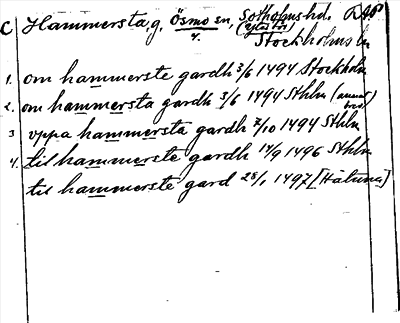 C Hammersta, g. Ösmo sn, Sotholms hd.
4. Stockholms ln
1. om hammerste gardh 3/6 1494 Stockholm
2. om hammersta gardh 3/6 1494 Sthlm
3 uppa hammersta gardh 7/10 1494 Sthlm
4. til hammerste gardh 14/9 1496 Sthlm
til hammerste gard 28/1 1497 [Håtuna]